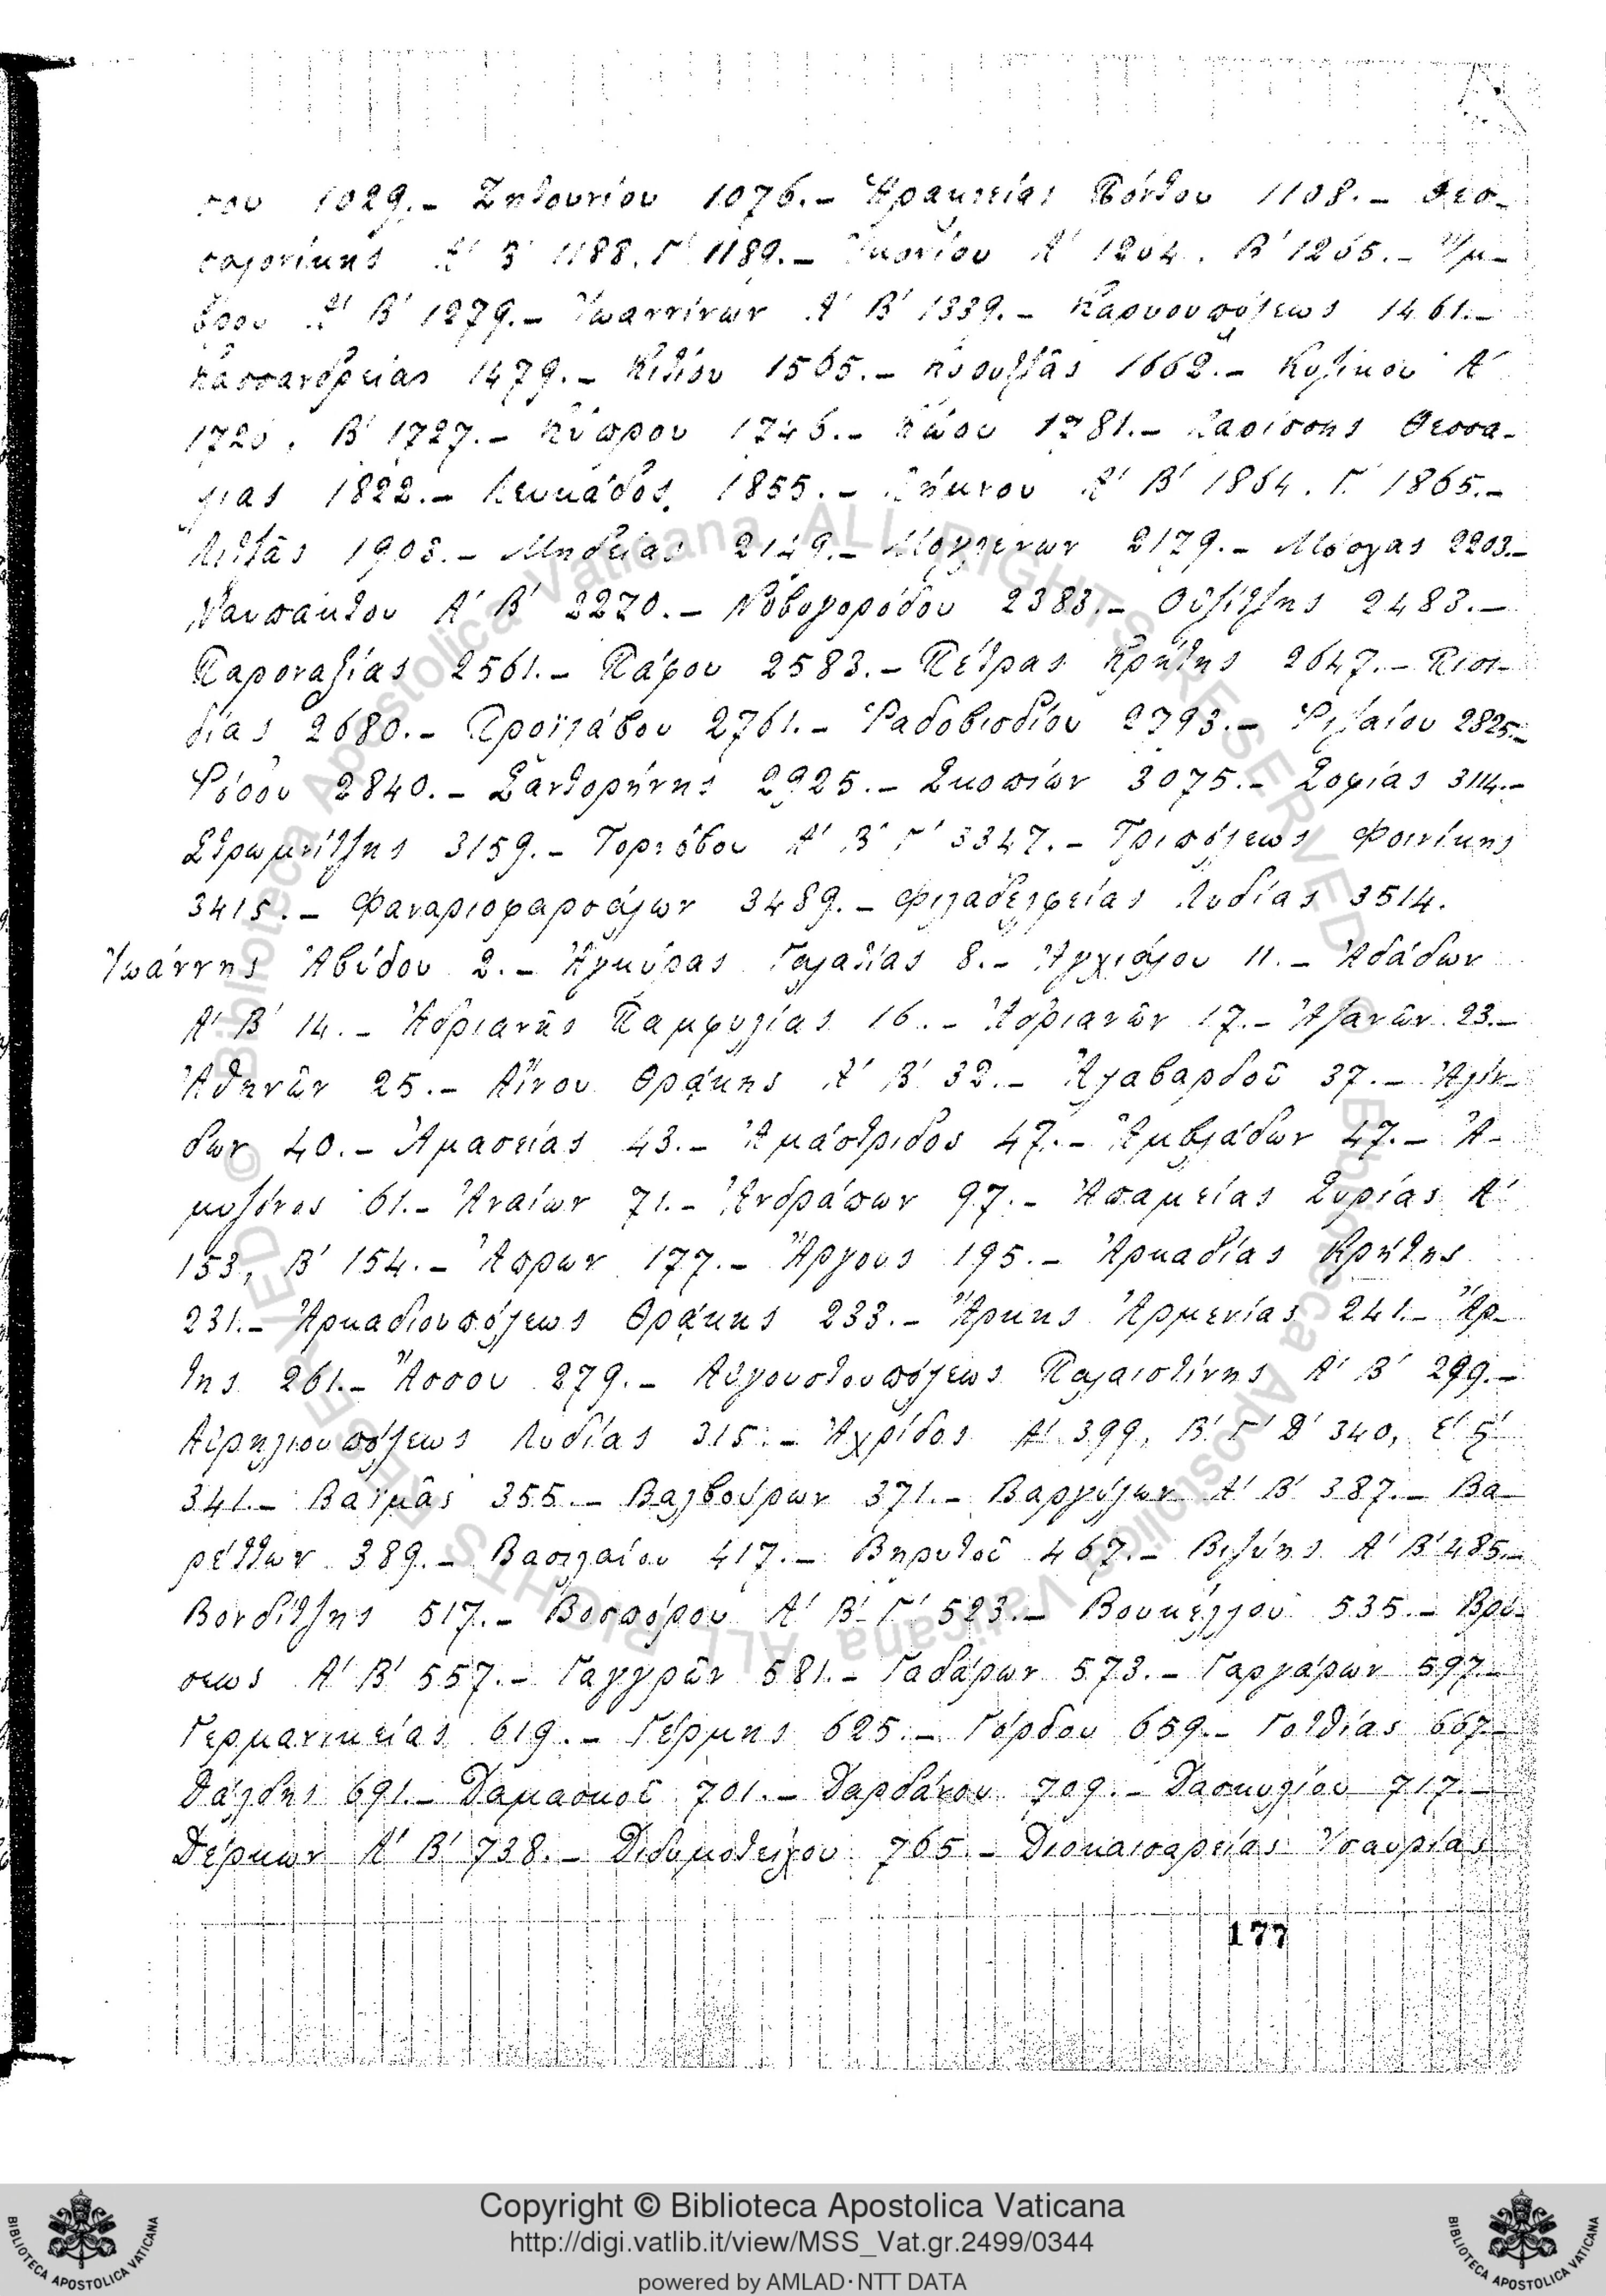 σου 1029.- Ζητουνίου 1076.- Ἡρακλείας Πόντου 1108.- Θεσ-
σαλονίκης Α' Β' 1188, Γ' 1189.- Ἰκονίου Α' 1264, Β' 1265.- Ἴμ-
βρου Α' Β' 1279.- Ἰωαννίνων Α' Β' 1339.- Καρυουπόλεως 1461.-
Κασσανδρείας 1479.- Κιτίου 1565.- 1662.- Κυζίκου Α'
1726, Β' 1727.- Κύπρου 1746.- Κώου 1781.- Λαρίσσης Θεσσα-
λίας 1822.- Λευκάδος 1855.- Λήμνου Α' Β' 1864, Γ' 1865.-
Λιτζᾶς 1903.- Μηδείας 2149.- Μογλενῶν 2179.- 2203.-
Ναυπάκτου Α' Β' 2270.- Νοβογορόδου 2383.- Οὐζίτζης 2483.-
Παροναξίας 2561.- Πάφου 2583.- Πέτρας Κρήτης 2647.- Πισι-
δίας 2680.- Προϊλάβου 2761.- Ῥαδοβισδίου 2793.- Ῥιζαίου 2825.-
Ῥόδου 2840.- Σαντορήνης 2925.- Σκοπίων 3075.- Σοφίας 3114.-
Στρωμνίτζης 3159.- Τορνόβου Α' Β' Γ' 3347.- Τριπόλεως Φοινίκης
3415.- Φαναριοφαρσάλων 3489.- Φιλαδελφείας Λυδίας 3514.
Ἰωάννης Ἀβύδου 2.- Ἀγκύρας Γαλατίας 8.- Ἀγχιάλου 11.- Ἀδάδων
Α' Β' 14.- Ἀδριανῆς Παμφυλίας 16.- Ἀδριανῶν 17.- Ἀζανῶν 23.-
Ἀθηνῶν 25.- Αἴνου Θράκης Α' Β' 32.- Ἀλαβαρδοῦ 37.- Ἀλίν-
δων 40.- Ἀμασείας 43.- Ἀμάστριδος 47.- Ἀμβλάδων 47.- Ἀ-
μυζόνος 61.- Ἀναίων 71.- Ἀνδράπων 97.- Ἀπαμείας Συρίας Α'
153, Β' 154.- Ἄπρων 177.- Ἄργους 195.- Ἀρκαδίας Κρήτης
231.- Ἀρκαδιουπόλεως Θράκης 233.- Ἄρκης Ἀρμενίας 241.- Ἄρ-
της 261.- Ἄσσου 279.- Αὐγουστουπόλεως Παλαιστίνης Α' Β' 299.-
Αὐρηλιουπόλεως Λυδίας 315.- Ἀχρίδος Α' 399, Β' Γ' Δ' 340, Ε' Ϛ'
341.- Βαϊμᾶς 355.- Βαλβούρων 371.- Βαργύλων Α' Β' 387.- Βα-
ρέττων 389.- Βασιλαίου 417.- Βηρυτοῦ 467.- Βιζύης Α' Β' 485.-
Βονδίτζης 517.- Βοσπόρου Α' Β' Γ' 523.- Βουκέλλου 535.- Βρύ-
σεως Α' Β' 557.- Γαγγρῶν 581.- Γαδάρων 573.- Γαργάρων 597.-
Γερμανικείας 619.- Γέρμης 625.- Γόρδου 659.- Γοτθίας 667.-
Δάλδης 691.- Δαμασκοῦ 701.- Δαρδάνου 709.- Δασκυλίου 717.-
Δέρκων Α' Β' 738.- Διδυμοτείχου 765.- Διοκαισαρείας Ἰσαυρίας
177
© Biblioteca Apostolica Vaticana ALL RIGHTS RESERVED
Copyright © Biblioteca Apostolica Vaticana
http://digi.vatlib.it/view/MSS_Vat.gr.2499/0344
powered by AMLAD·NTT DATA
BIBLIOTECA APOSTOLICA VATICANA
BIBLIOTECA APOSTOLICA VATICANA